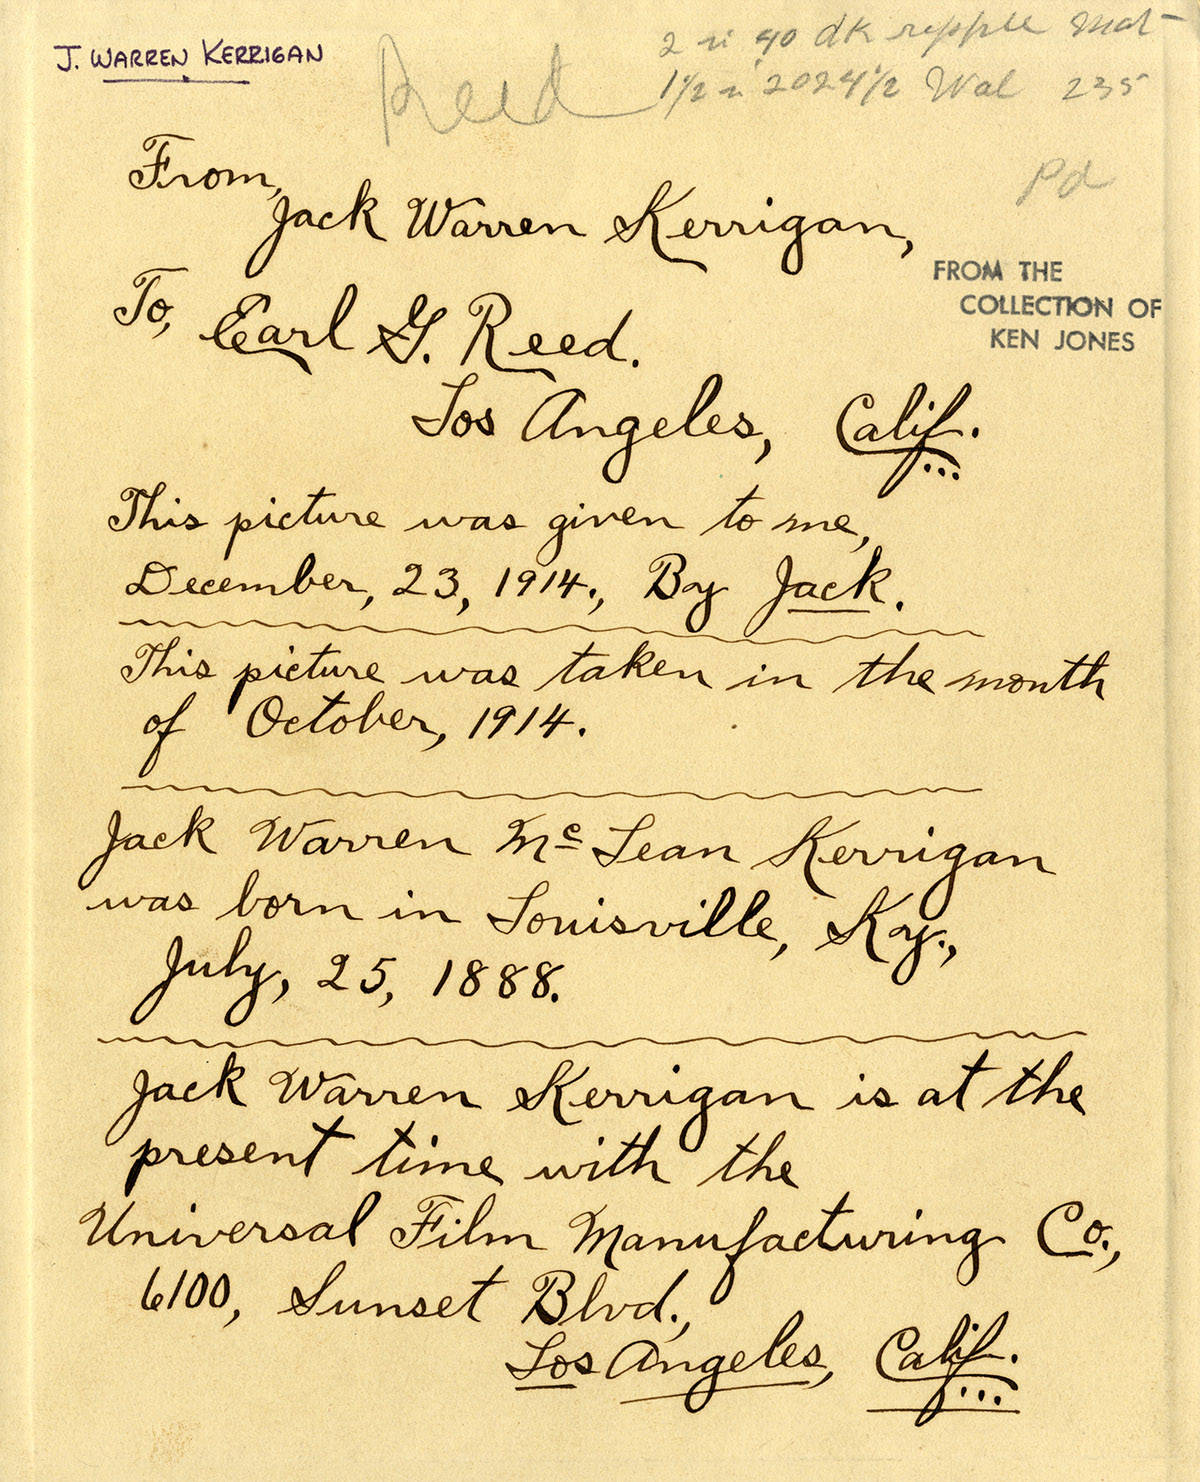 J. WARREN KERRIGAN
Reed
2 40 dk Mat
1 1/2 235
Pd
From,
Jack Warren Kerrigan,
FROM THE
COLLECTION OF
KEN JONES
To, Earl G. Reed.
Los Angeles, Calif.
This picture was given to me,
December, 23, 1914., By Jack.
This picture was taken in the month
of October, 1914.
Jack Warren Mc Lean Kerrigan
was born in Louisville, Ky.,
July, 25, 1888.
Jack Warren Kerrigan is at the
present time with the
Universal Film Manufacturing Co.,
6100, Sunset Blvd.,
Los Angeles, Calif.